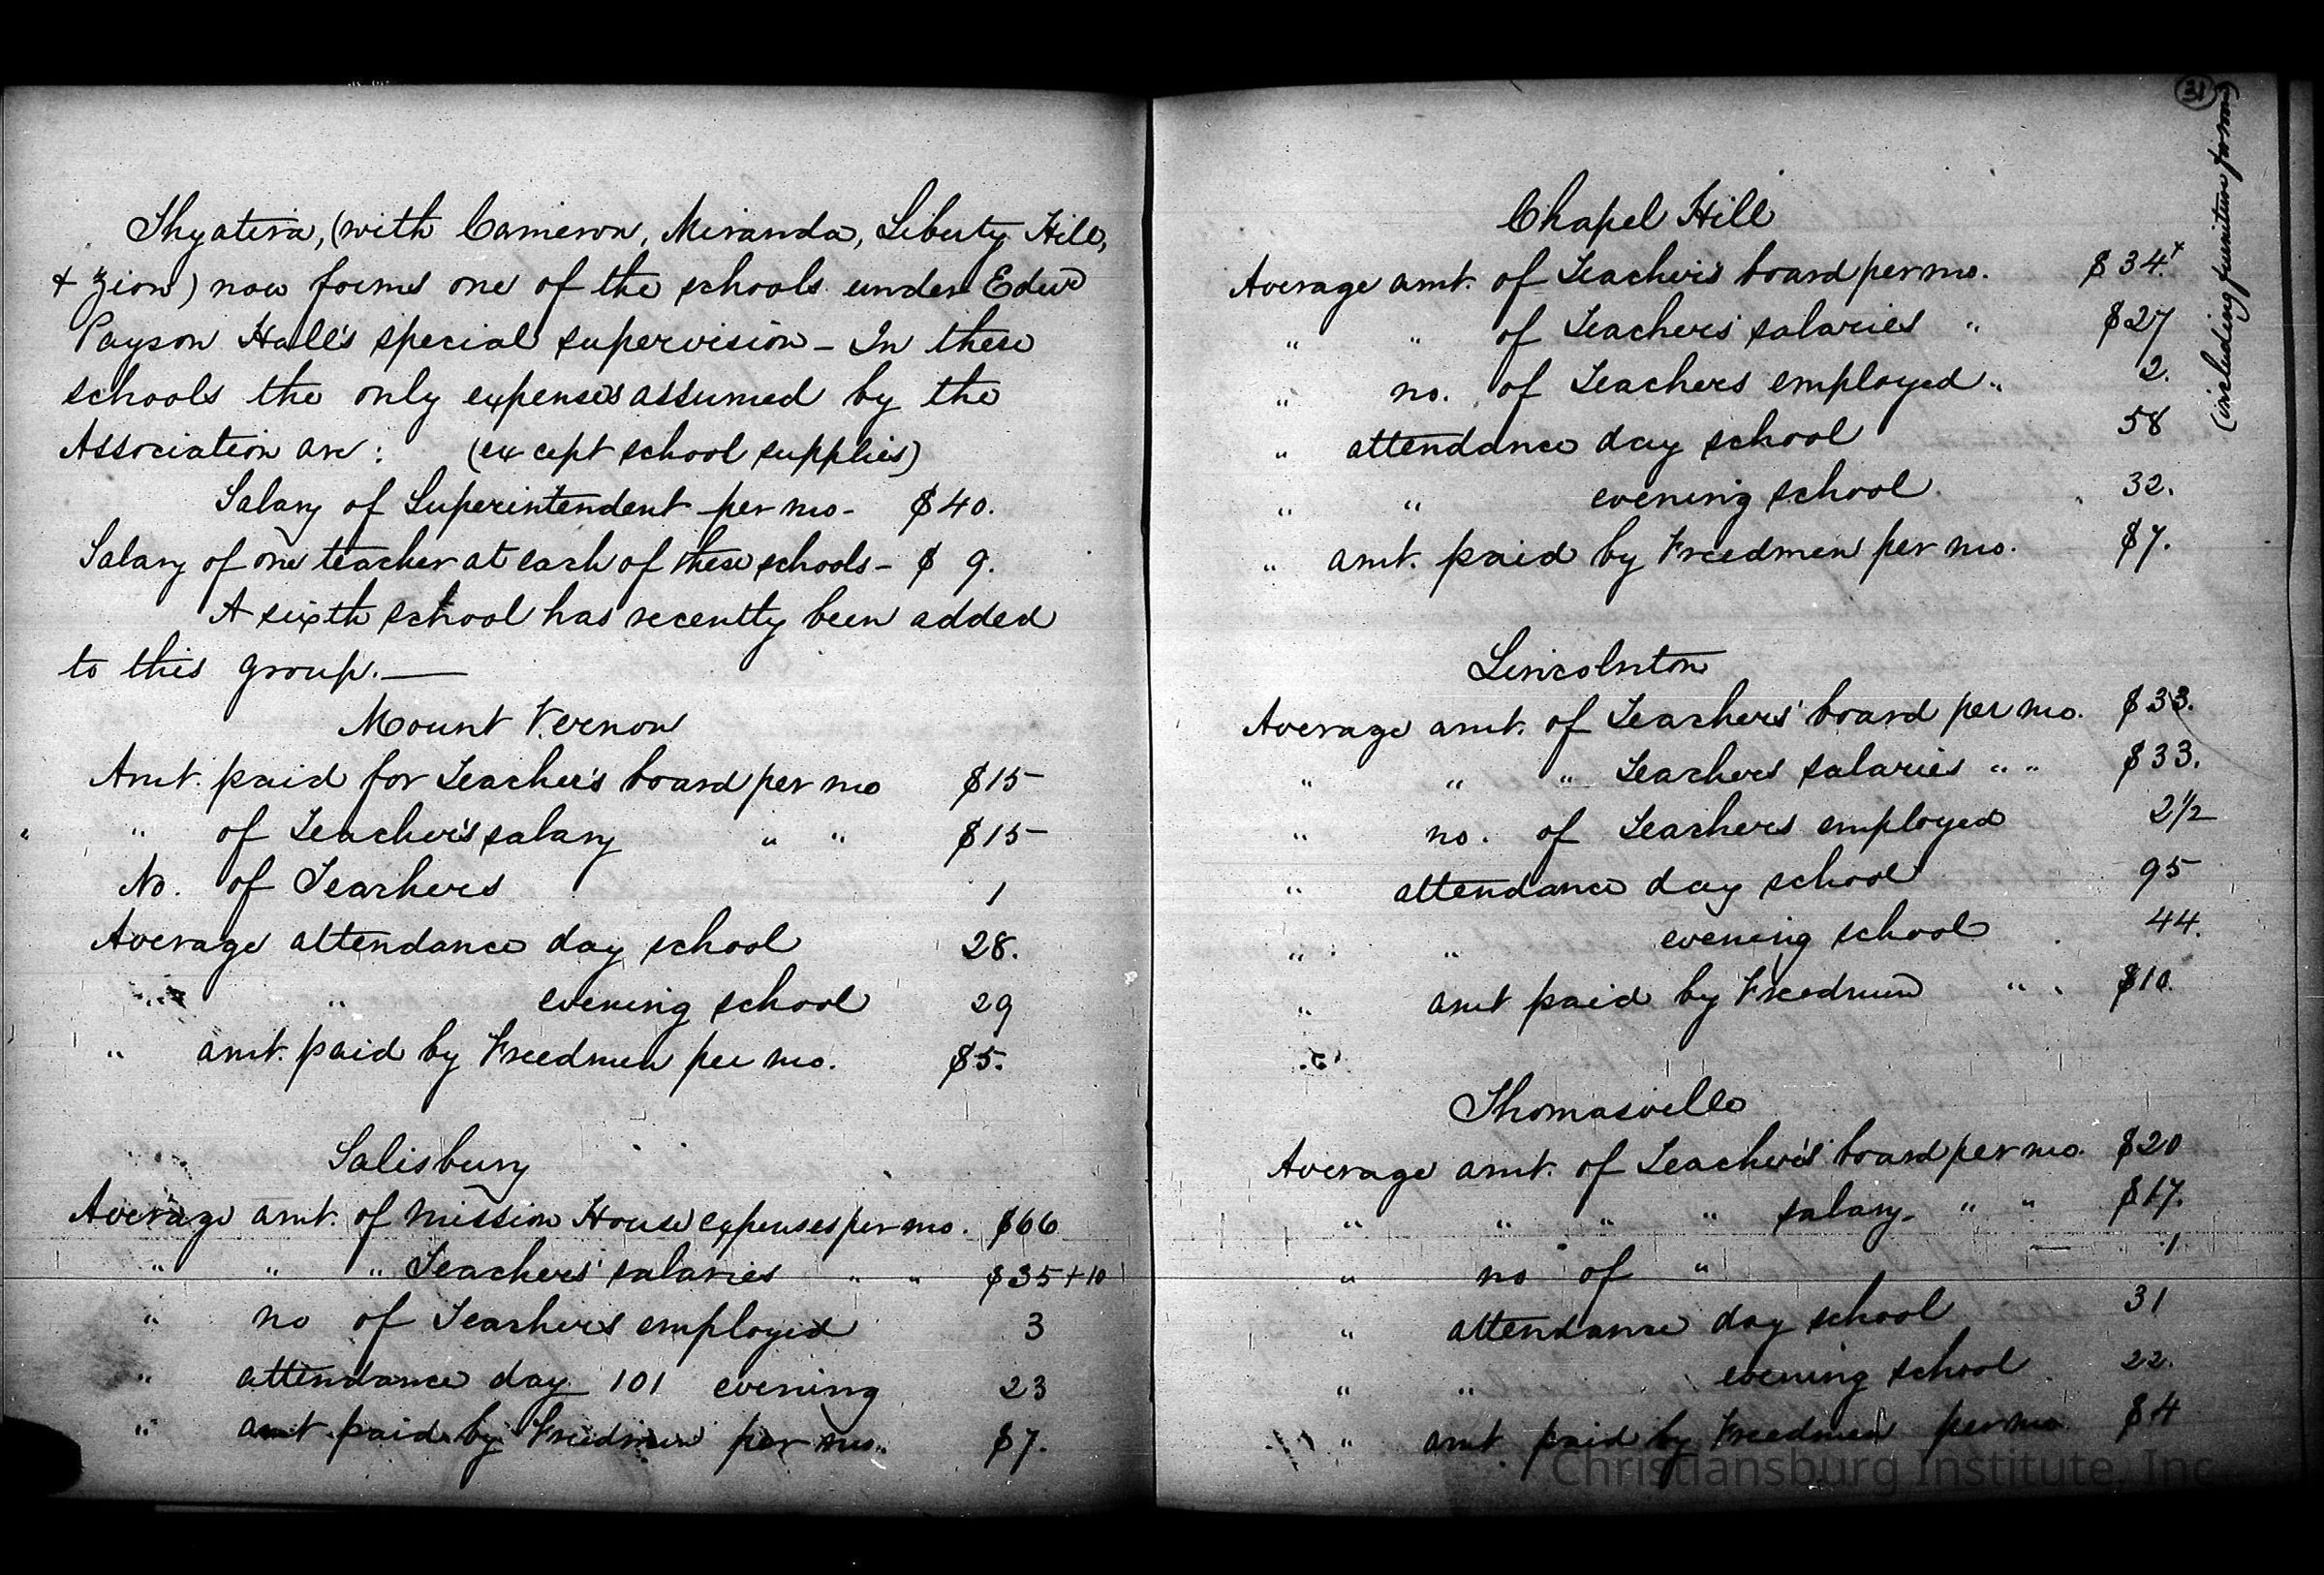 Thyatira, (with Cameron, Miranda, Liberty Hill,
+ Zion) now forms one of the schools under Edwd
Payson Hall's special supervision - In these
schools the only expenses assumed by the
Association are: (except school supplies)
Salary of Superintendent per mo - $40.
Salary of one teacher at each of these schools - $ 9.
A sixth school has recently been added
to this group. —
Mount Vernon
Amt. paid for Teacher's board per mo $15
" " of Teacher's salary " " $15
No. of Teachers 1
Average attendance day school 28.
" " evening school 29
" amt. paid by Freedmen per mo. $5.
Salisbury
Average amt. of Mission House expenses per mo. $66
" " " Teachers' salaries " " $35 + 10
" no of Teachers employed 3
" attendance day 101 evening 23
" amt paid by Freedmen per mo. $7.
31
(including furniture for rooms)
Chapel Hill
Average amt. of Teacher's board per mo. $34.+
" " of Teachers' salaries " $27
" no. of Teachers employed " 2.
" attendance day school 58
" " evening school 32.
" amt. paid by Freedmen per mo. $7.
Lincolnton
Average amt. of Teachers' board per mo. $33.
" " " Teachers' salaries " " $33.
" no. of Teachers employed 2½
" attendance day school 95
" " evening school 44.
" amt paid by Freedmen " " $10.
Thomasville
Average amt. of Teacher's board per mo. $20
" " " " salary - " " $17.
" no of " — 1
" attendance day school 31
" " evening school 22.
" amt paid by Freedmen per mo $4
Christiansburg Institute, Inc.